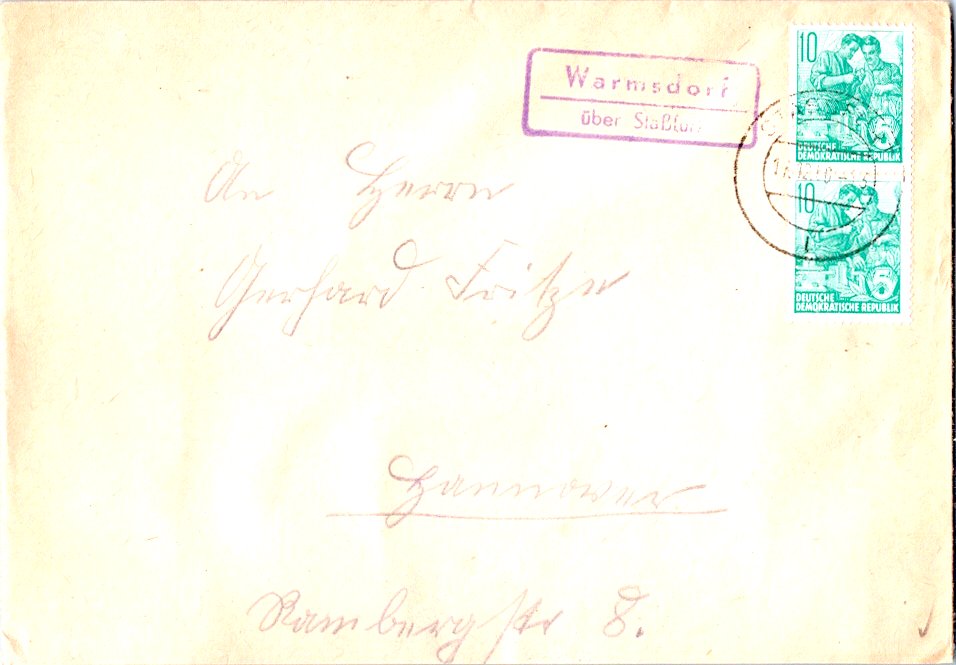 Warmsdorf
über Staßfurt
10
DEUTSCHE
DEMOKRATISCHE REPUBLIK
10
DEUTSCHE
DEMOKRATISCHE REPUBLIK
An Herrn
Gerhard Fritze
Hannover
Rambergstr 8.